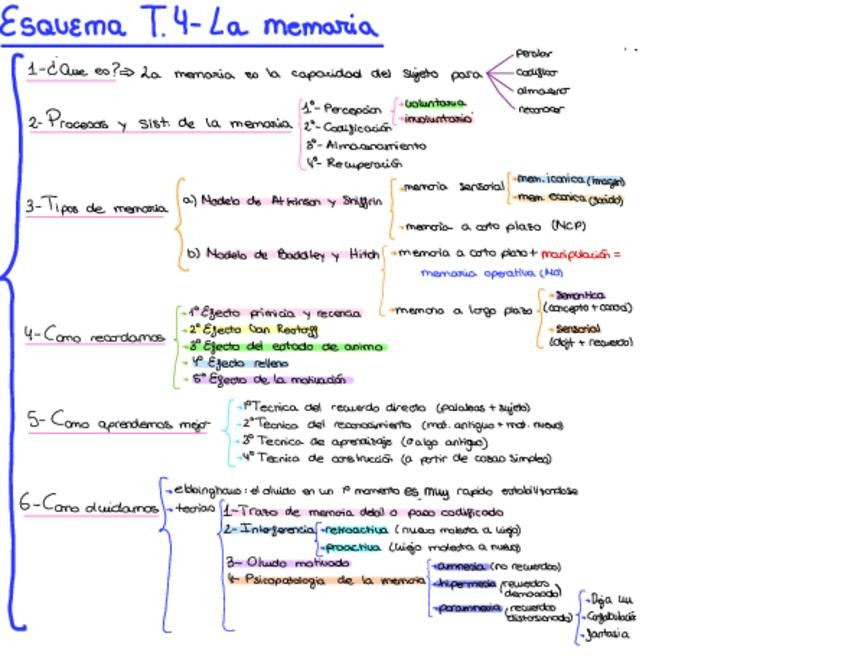 Esquema T.4-La memoria
1-¿Que es?⇒ La memoria es la capacidad del sujeto para
percibir
codificar
almacenar
reconocer
2-Procesos y sist. de la memoria
1º- Percepcion
voluntaria
involuntaria
2º- Codificación
3º- Almacenamiento
4º- Recuperación
3-Tipos de memoria
a) Modelo de Atkinson y Shiffrin
memoria sensorial
mem. iconica (imagen)
mem. ecoica (sonido)
memoria a corto plazo (NCP)
b) Modelo de Baddley y Hitch
memoria a corto plazo + manipulación =
memoria operativa (MO)
memoria a largo plazo
semantica
(concepto +
sensorial
(objt + recuerdo)
4-Como recordamos
1º Efecto primicia y recencia
2º Efecto Van Restorff
3º Efecto del estado de animo
4º Efecto relleno
5º Efecto de la motivación
5- Como aprendemos mejor
1º Tecnica del recuerdo directo (palabras + sujeto)
2º Tecnica del reconocimiento (mat. antiguo + mat. nuevo)
3º Tecnica de aprendizaje (algo antiguo)
4º Tecnica de construcción (a partir de cosas simples)
6-Como olvidamos
ebbinghaus: el olvido en un 1º momento es muy rapido estabilizandose
teorias
1-Trazo de memoria debil o poco codificado
2-Interferencia
retroactiva (nuevo molesta a viejo)
proactiva (viejo molesta a nuevo)
3- Olvido motivado
4- Psicopatologia de la memoria
amnesia (no recuerdos)
hipermesia (recuerdos
demasiado)
paramnesia (recuerdos
distorsionado)
Deja vu
Confabulación
fantasia